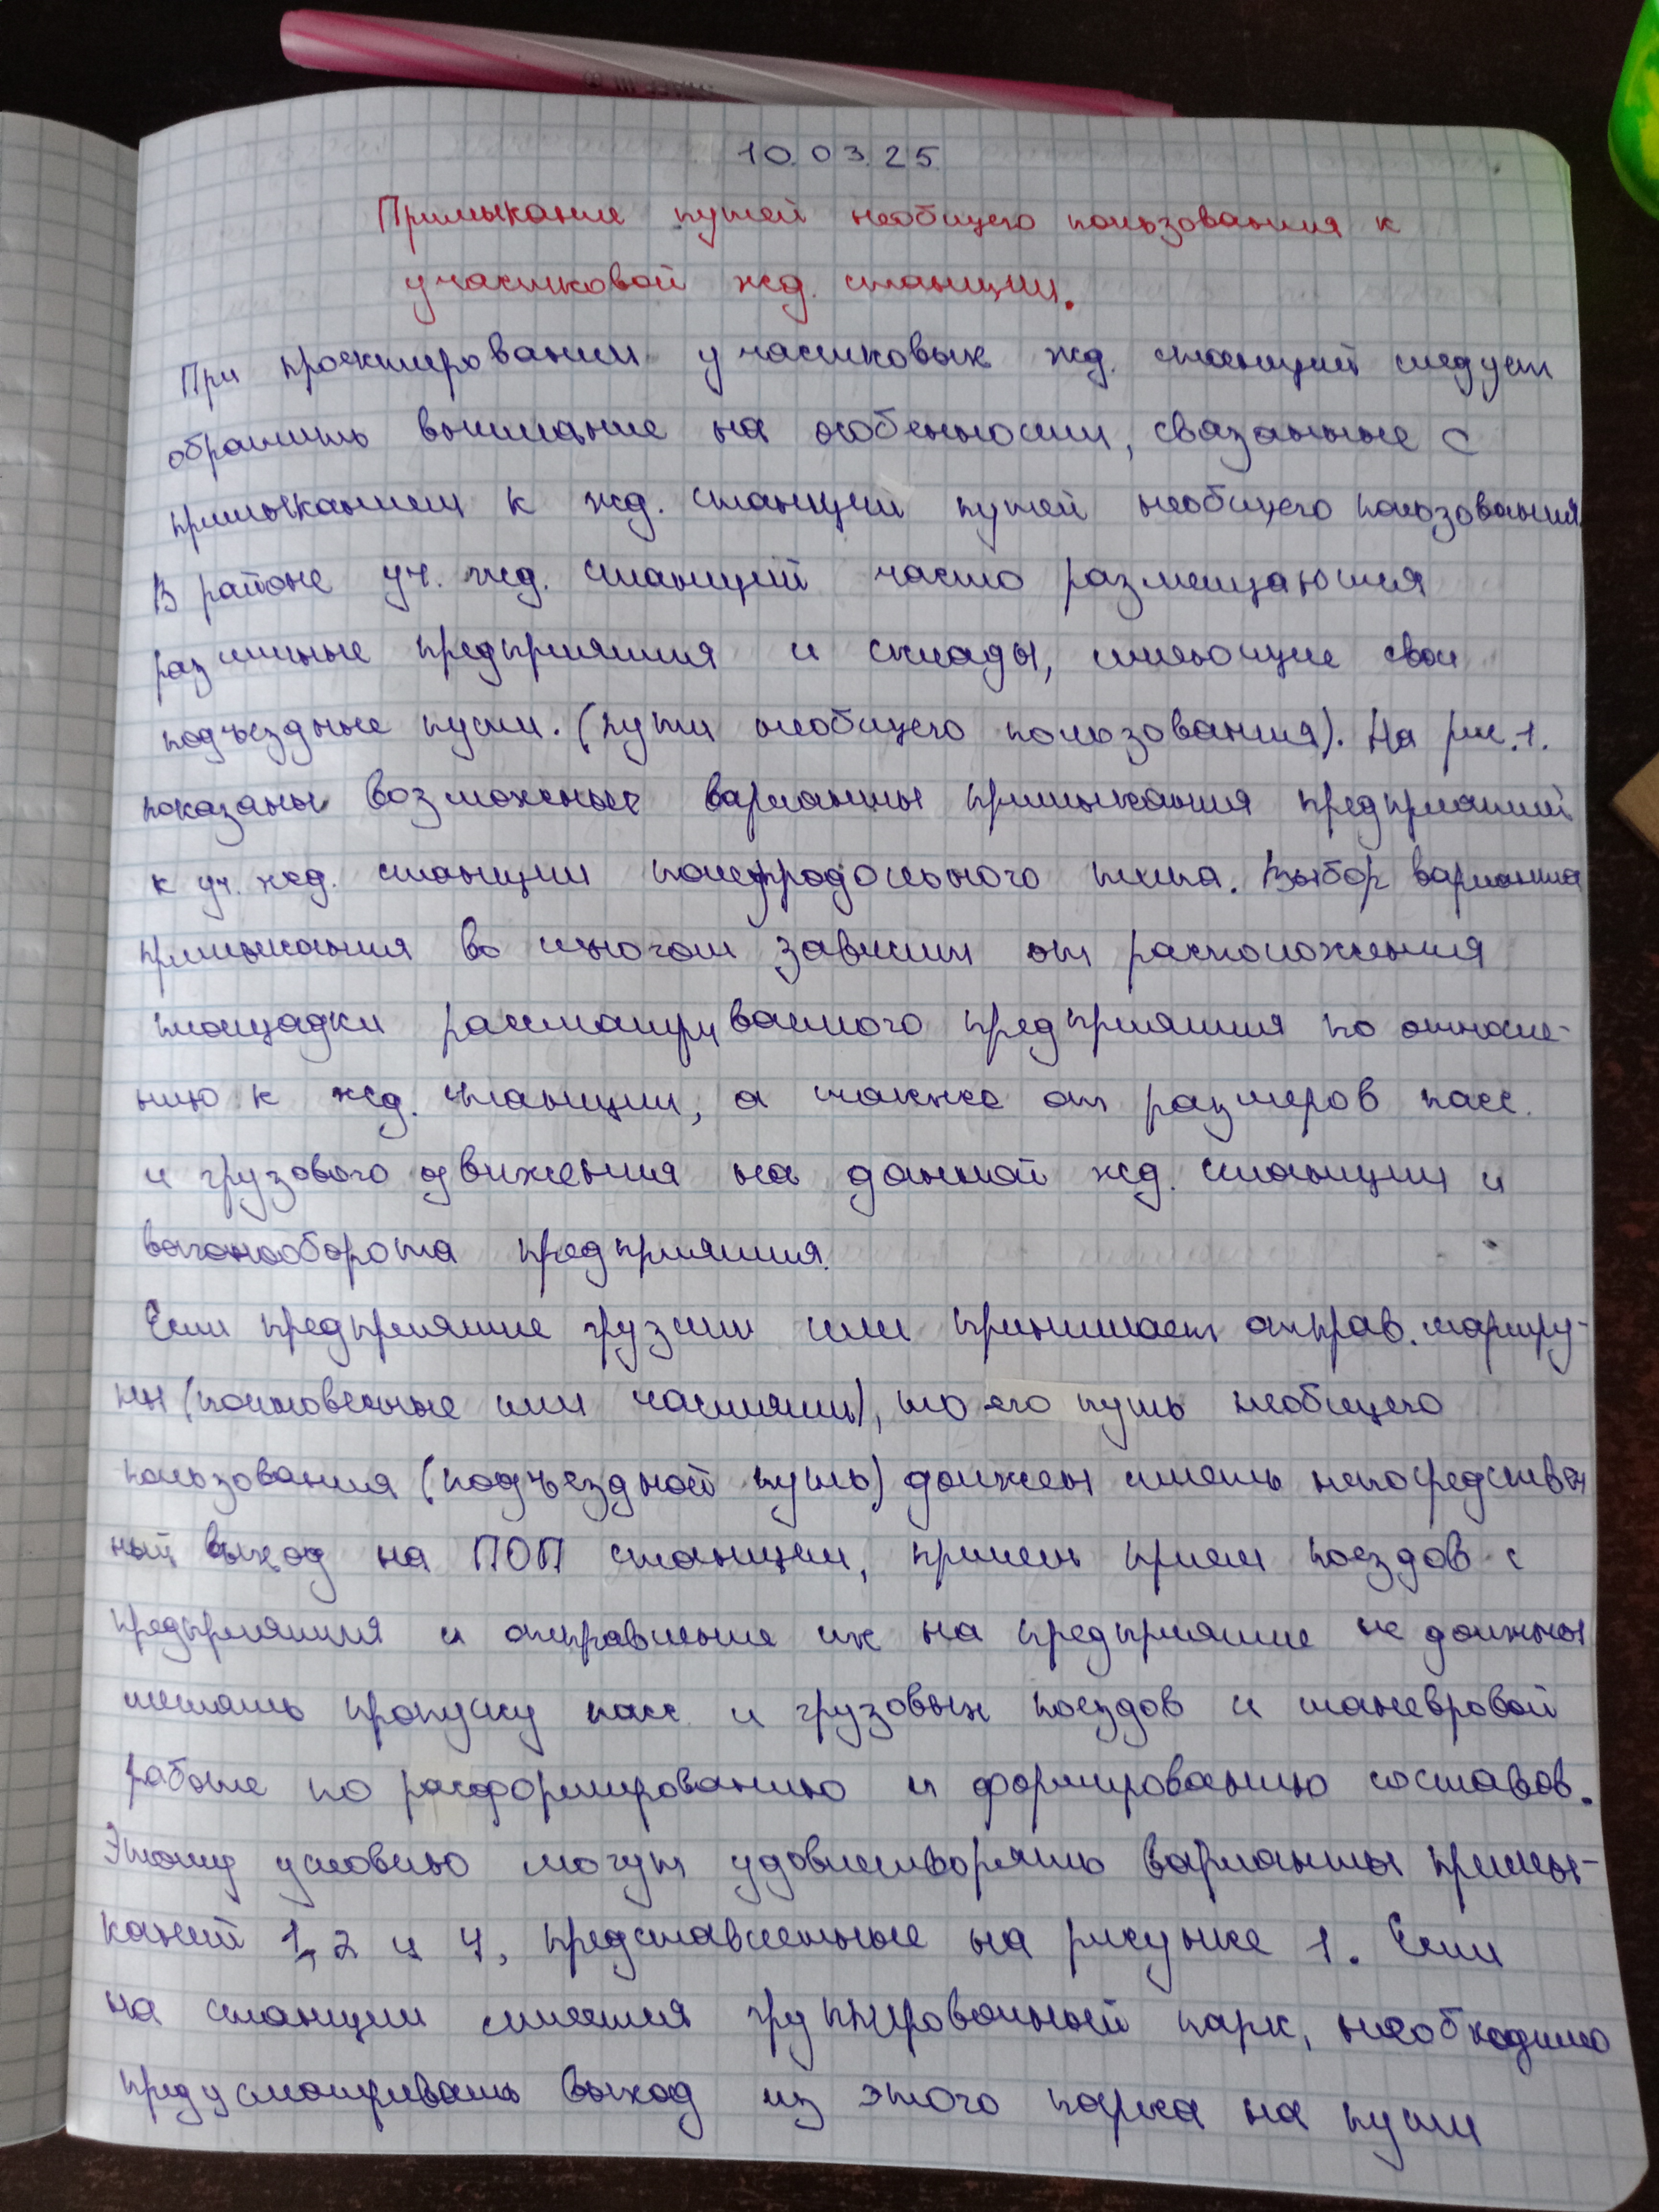 10.03.25
Примыкание путей необщего пользования к
участковой жд. станции.
При проектировании участковых жд. станций следует
обратить внимание на особенности, связанные с
примыканием к жд. станции путей необщего пользования
В районе уч. жд. станций часто размещаются
различные предприятия и склады, имеющие свои
подъездные пути. (пути необщего пользования). На рис.1.
показаны возможные варианты примыкания предприятий
к уч. жд. станции полупродольного типа. Выбор варианта
примыкания во многом зависит от расположения
площадки рассматриваемого предприятия по отноше-
нию к жд. станции, а также от размеров пасс.
и грузового движения на данной жд. станции и
вагонооборота предприятия.
Если предприятие грузит или принимает отправ. маршру-
ты (полновесные или частями), то его путь необщего
пользования (подъездной путь) должен иметь непосредствен
ный выход на ПОП станции, причем прием поездов с
предприятия и отправление их на предприятие не должны
мешать пропуску пасс. и грузовых поездов и маневровой
работе по расформированию и формированию составов.
Этому условию могут удовлетворять варианты примы-
каний 1, 2 и 4, представленные на рисунке 1. Если
на станции имеется группировочный парк, необходимо
предусматривать выход из этого парка на пути